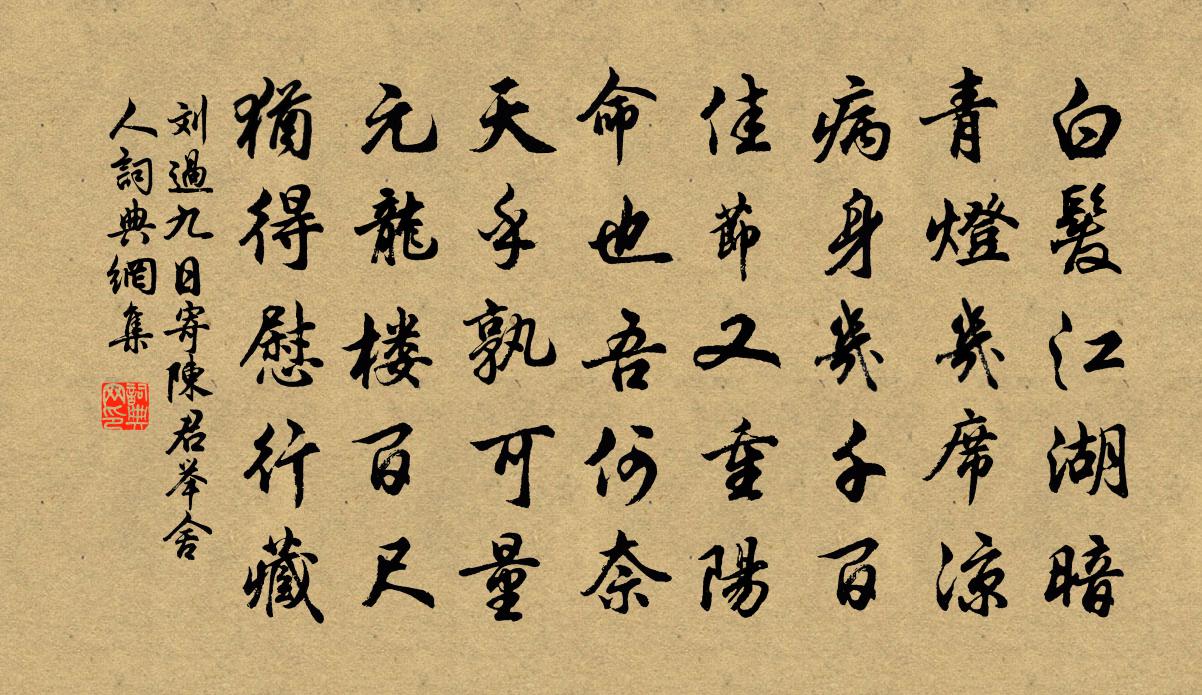 白髮江湖暗
青燈幾席涼
病身幾千百
佳節又重陽
命也吾何奈
天乎孰可量
元龍楼百尺
猶得慰行藏
刘過九日寄陳君举舍
人詞典網集
詞典
网印